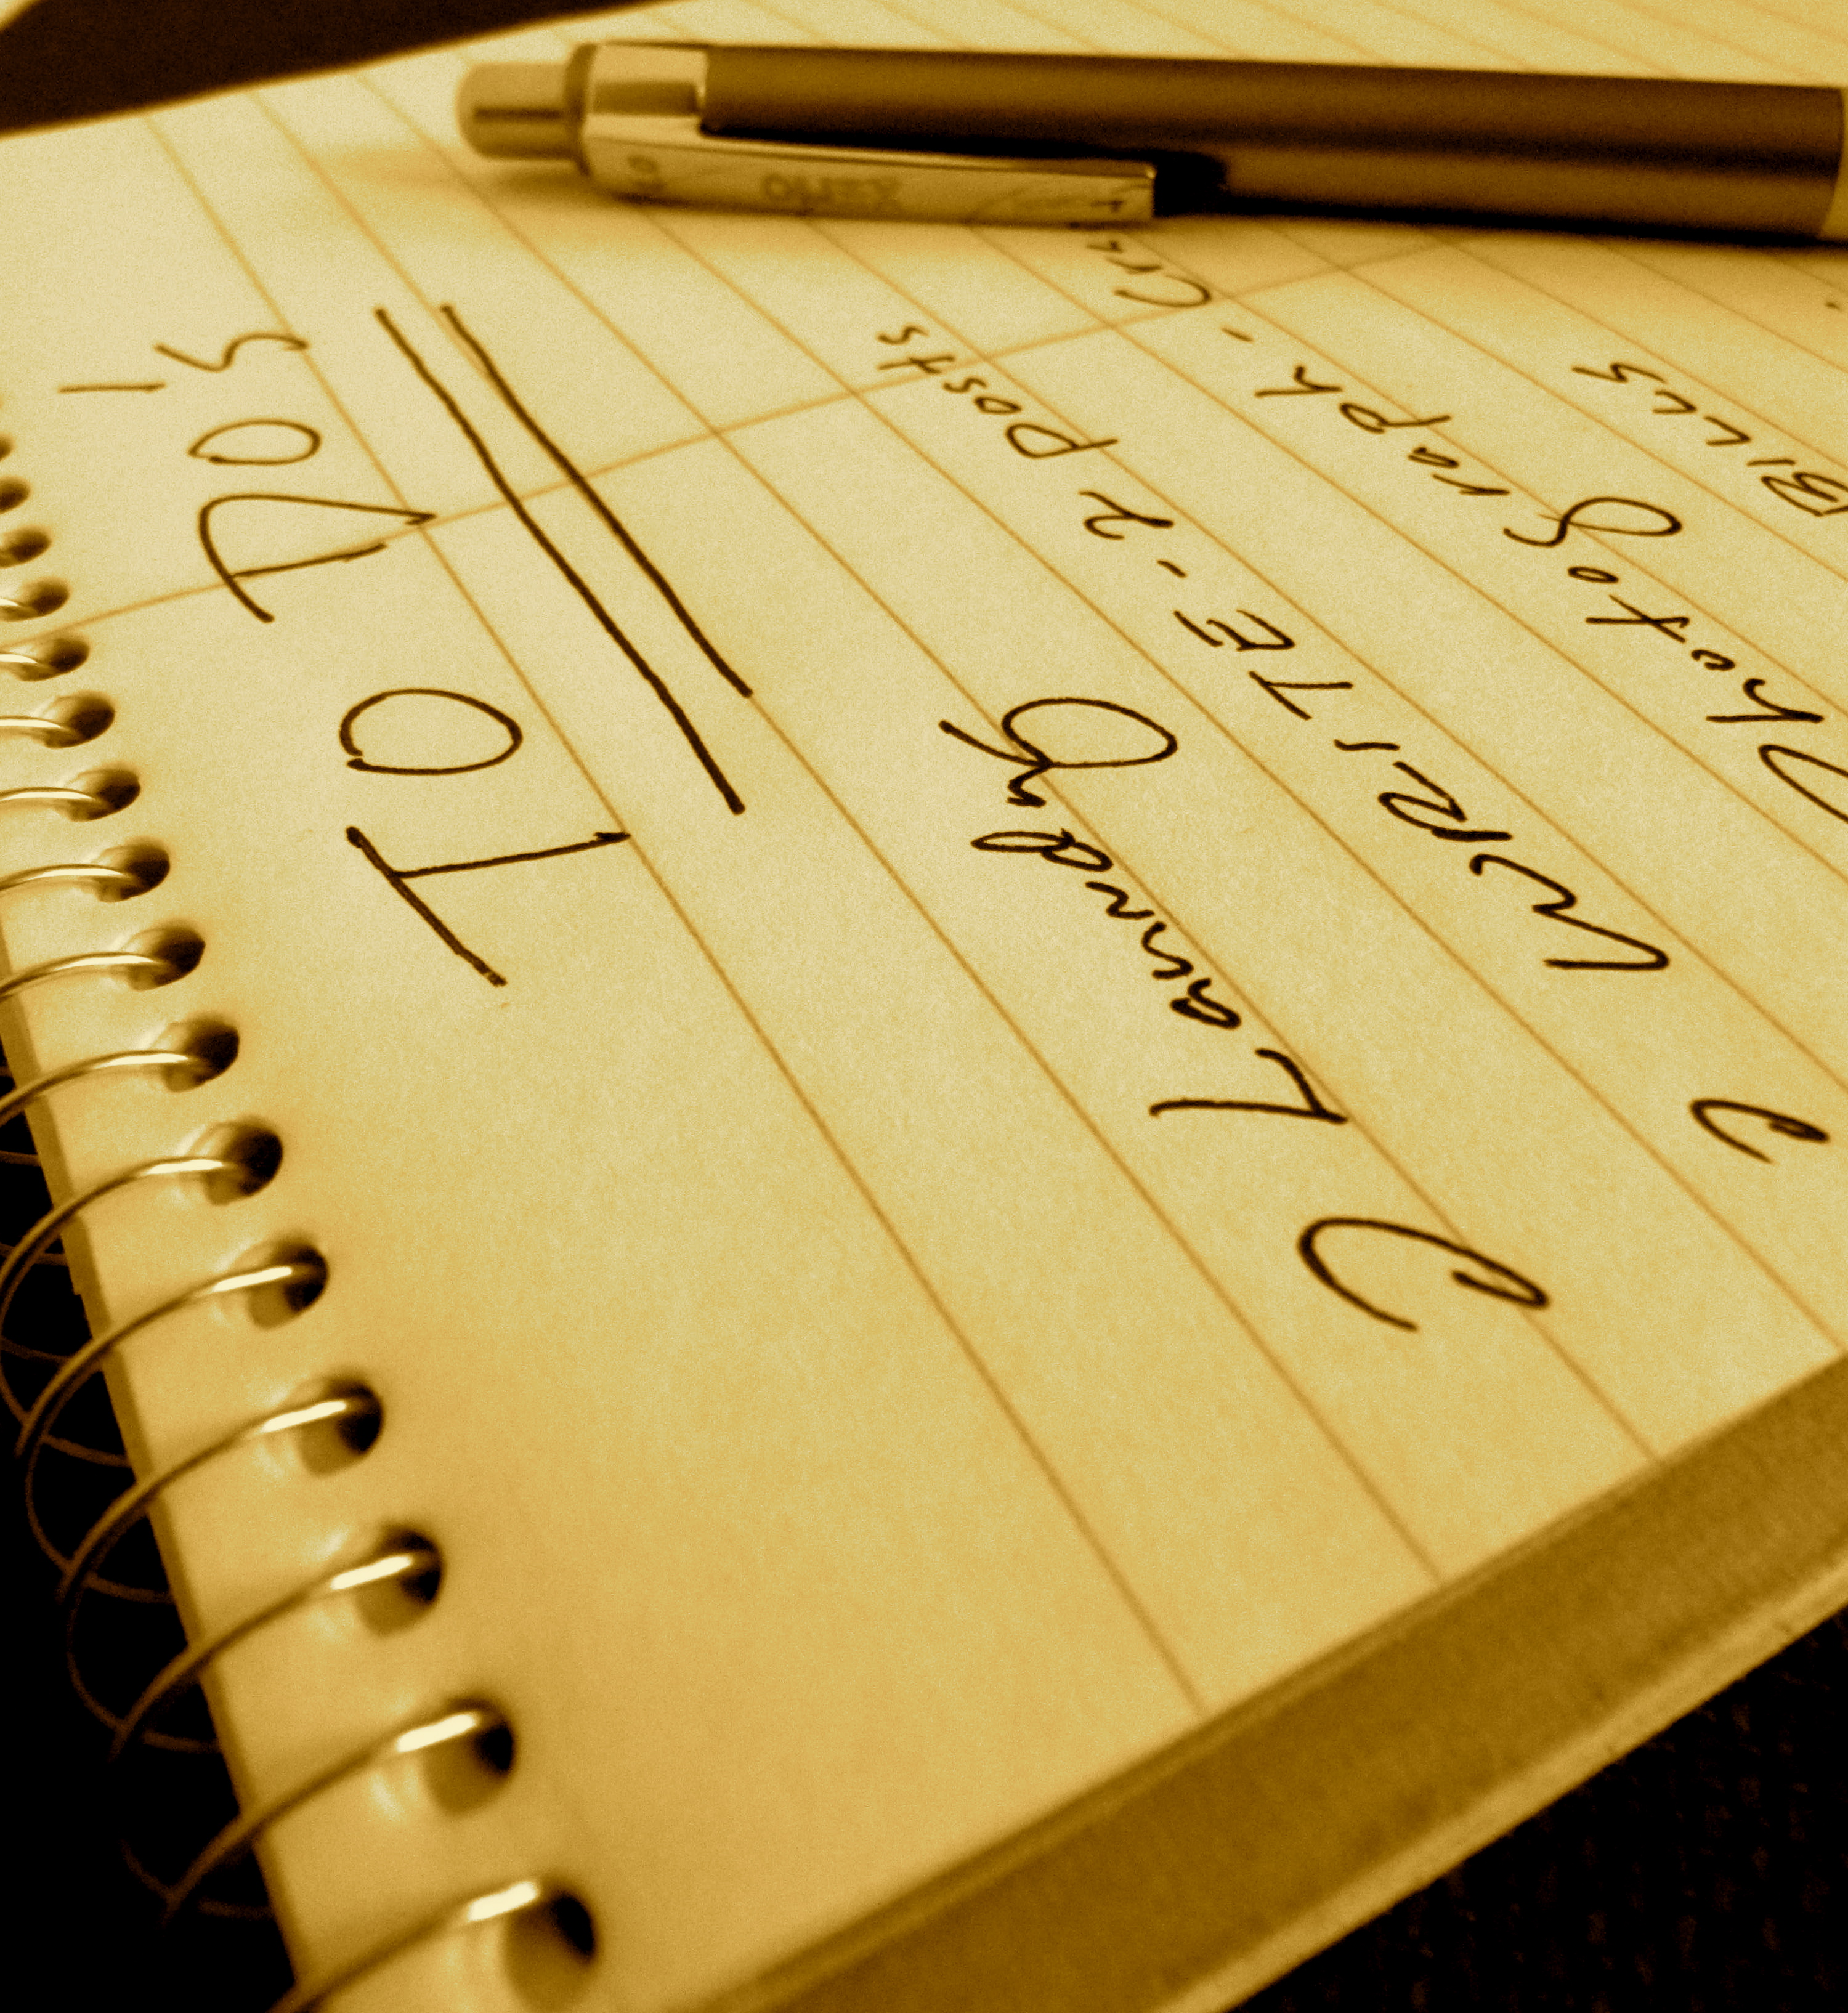 TO DO'S
Laundry
WRITE - 2 posts
Photograph -
BILLS